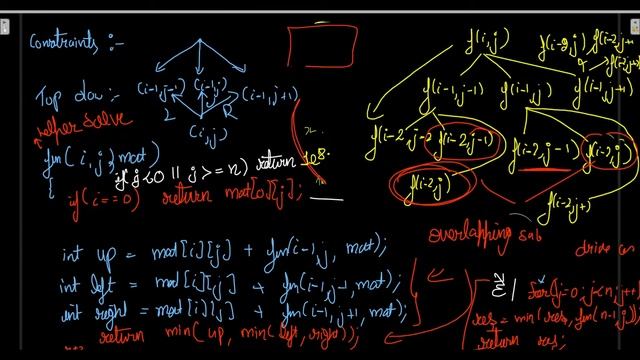 Constraints :-
(i-1,j-1) (i-1,j) (i-1,j+1)
L R
(i,j)
Top dow :-
helper solve
fun(i,j,mat)
{ if(j<0 || j>=n) return 10^8.
if(i==0) return mat[0][j];
int up = mat[i][j] + fun(i-1,j, mat);
int left = mat[i][j] + fun(i-1,j-1,mat);
int right = mat[i][j] + fun(i-1,j+1,mat);
return min(up, min(left,right));
f(i,j)
f(i-2,j) f(i-2,j+1
f(i-2,j+2)
f(i-1,j-1) f(i-1,j) f(i-1,j+1)
f(i-2,j-2 f(i-2,j-1) f(i-2,j-1) f(i-2,j)
f(i-2,j) f(i-2,j+)
overlapping sub
for(j=0;j<n;j++
res = min(res, fun(n-1,j));
return res;